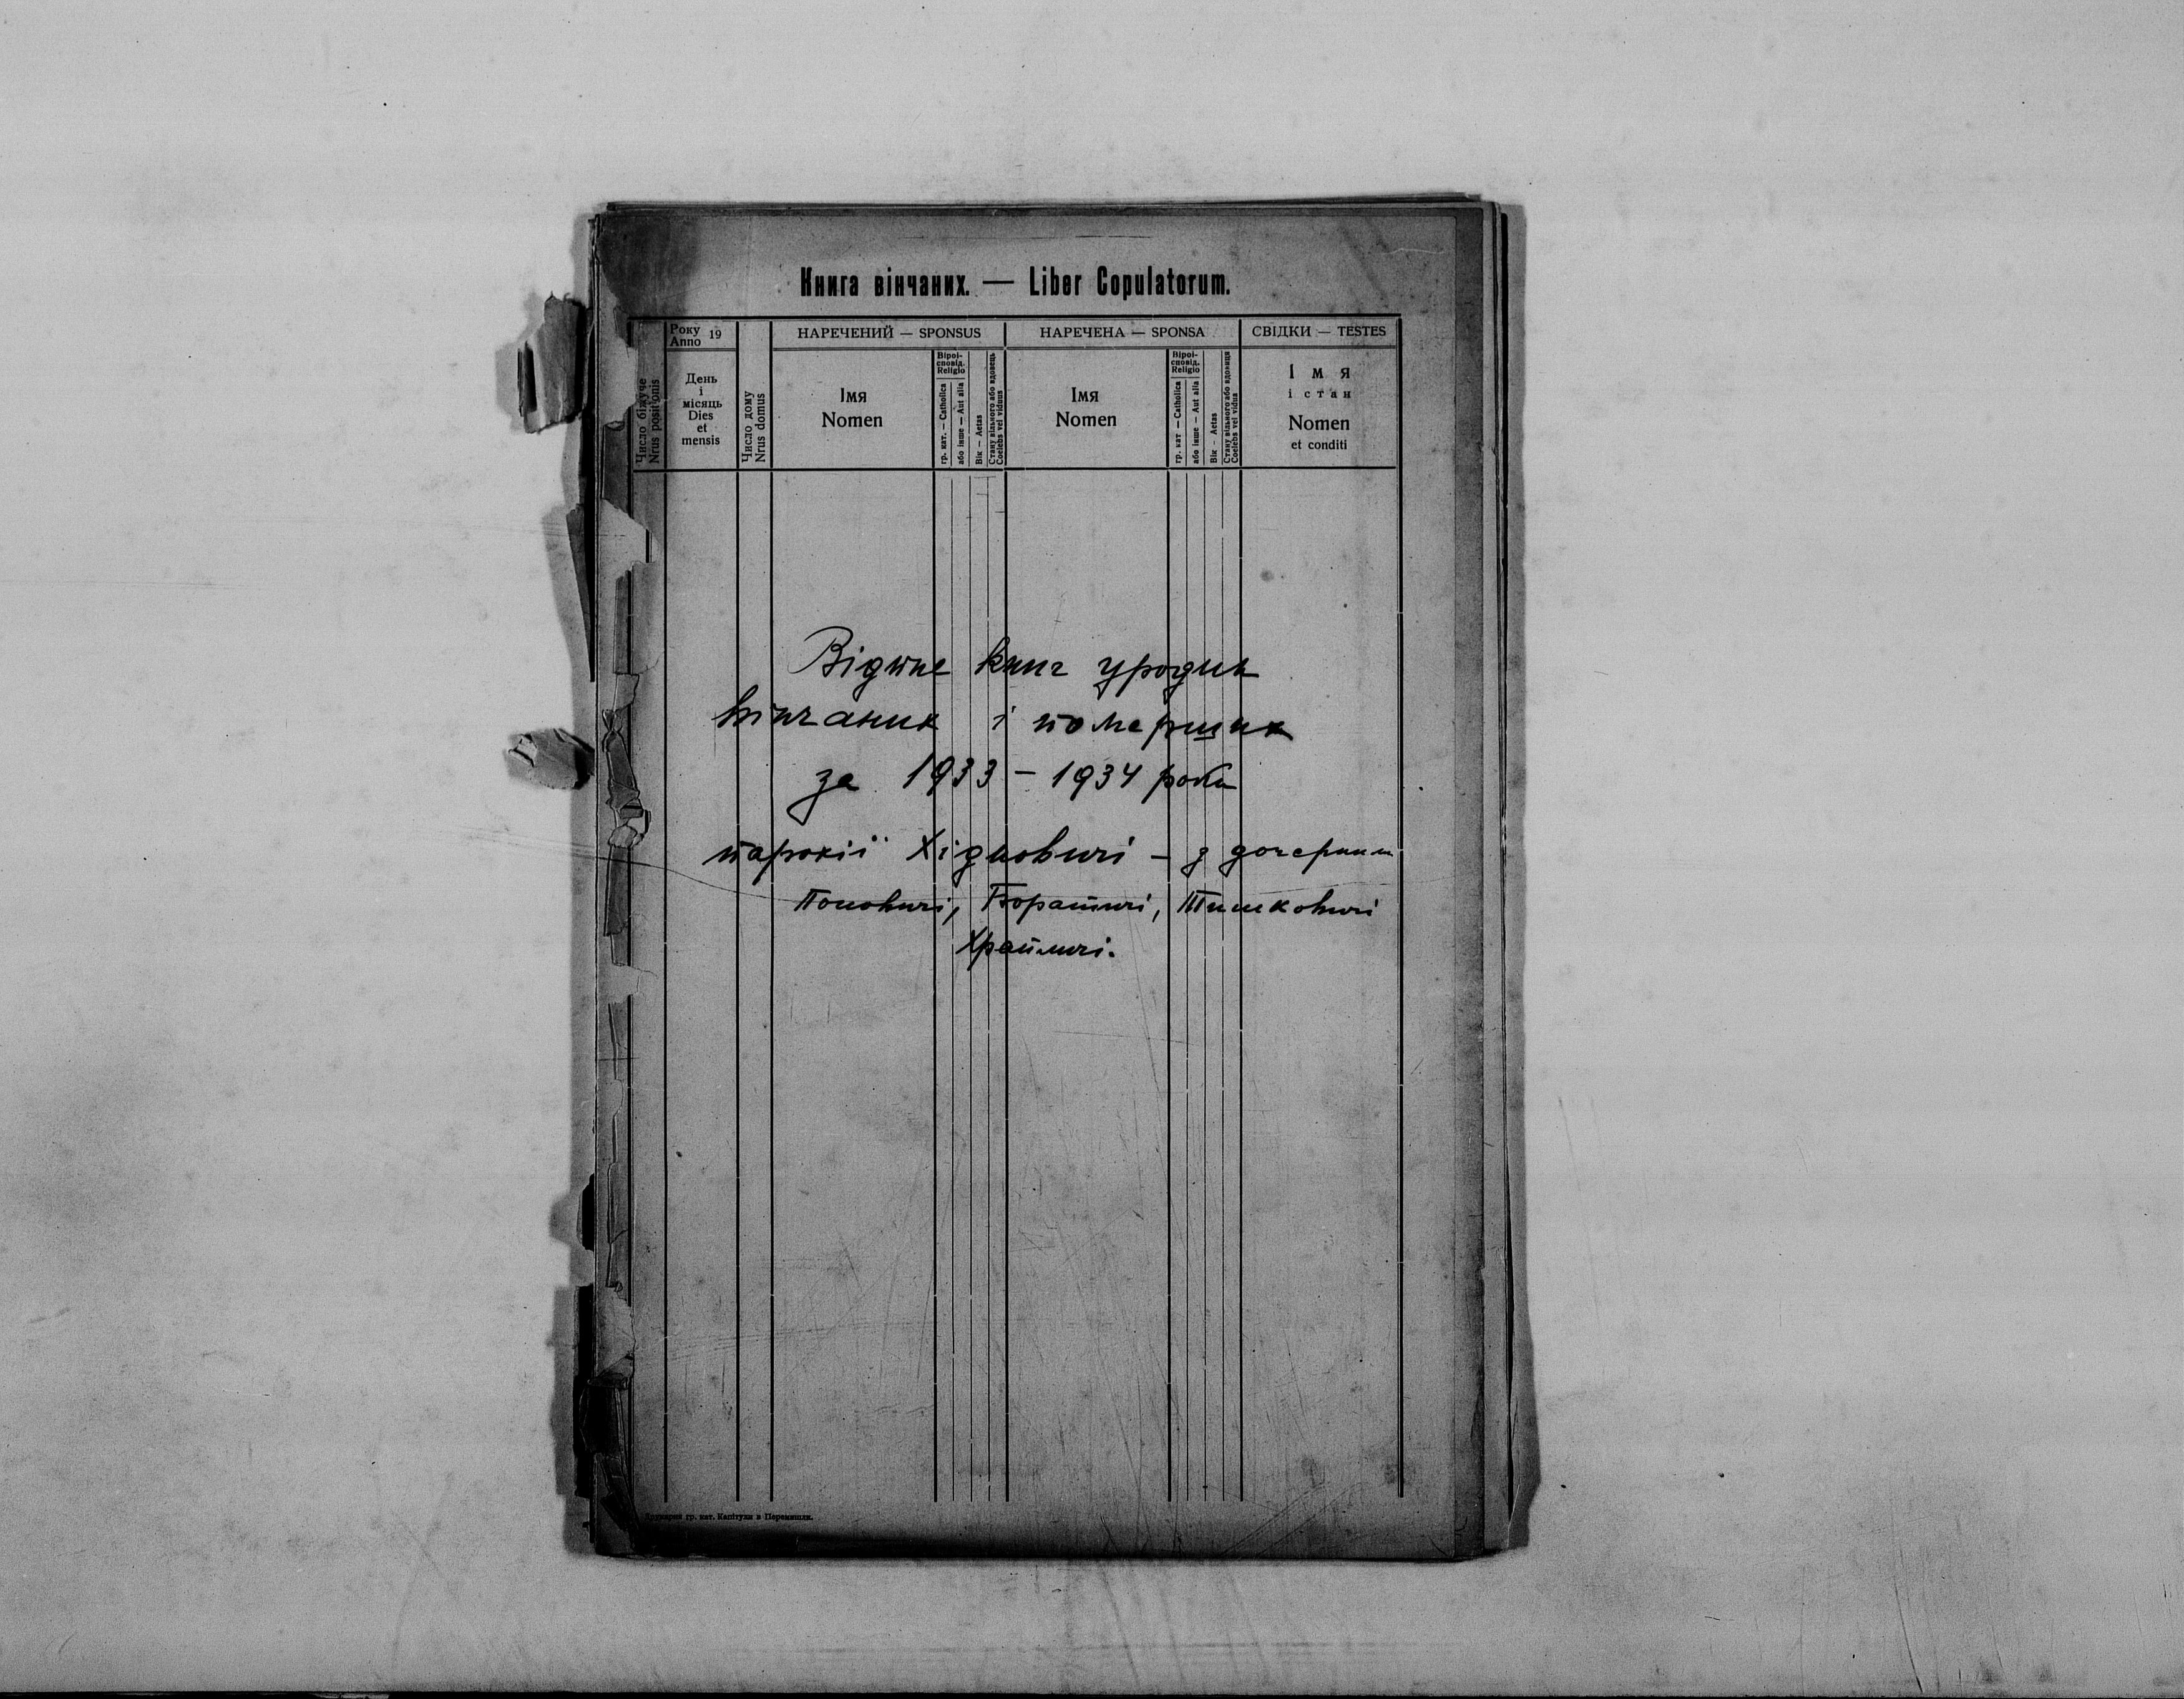 Книга вінчаних. — Liber Copulatorum.
Число біжуче
Nrus positionis
Року
Anno 19
День
і
місяць
Dies
et
mensis
Число дому
Nrus domus
НАРЕЧЕНИЙ — SPONSUS
Імя
Nomen
Віроі-
сповід.
Religio
гр. кат. — Catholica
або інше — Aut alia
Вік — Aetas
Стану вільного або вдовець
Coelebs vel viduus
НАРЕЧЕНА — SPONSA
Імя
Nomen
Віроі-
сповід.
Religio
гр. кат — Catholica
або інше — Aut alia
Вік — Aetas
Стану вільного або вдовиця
Coelebs vel vidua
СВІДКИ — TESTES
Імя
і стан
Nomen
et conditi
Відпис книг уродин
вінчаних і померших
за 1933 – 1934 роки
парохії Хідновичі – з дочерними
Поповичі, Боратичі, Тишковичі
Храпличі.
Друкарня гр. кат. Капітули в Перемишли.